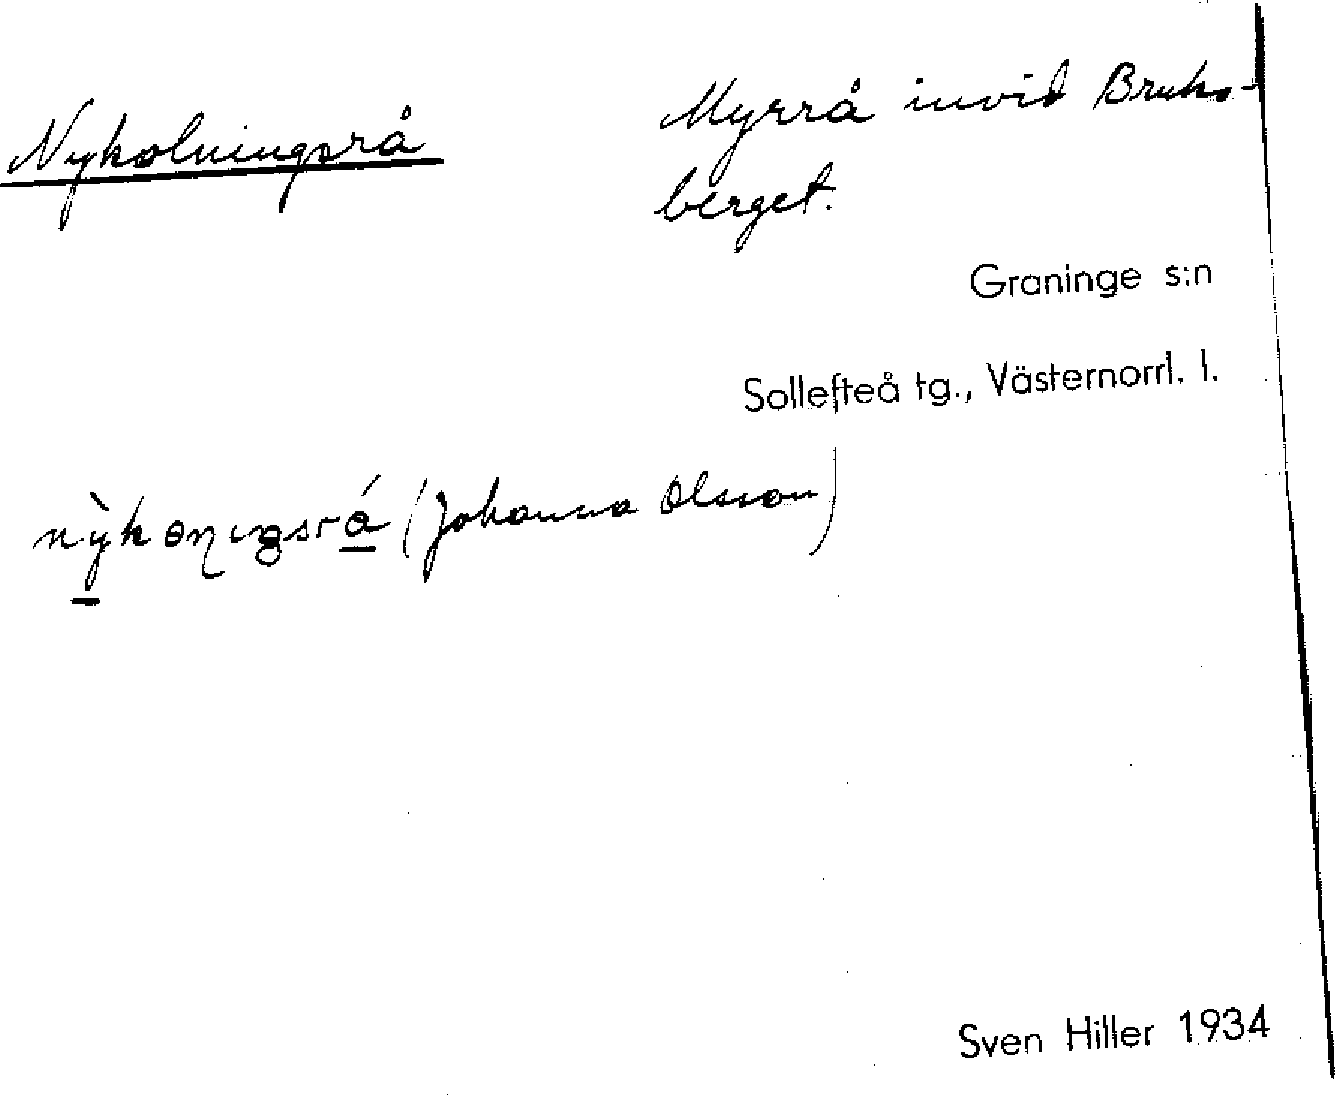 Nykolningsrå
Myrrå invid Bruks-
berget.
Graninge s:n
Sollefteå tg., Västernorrl. l.
(Johanna Olsson)
Sven Hiller 1934